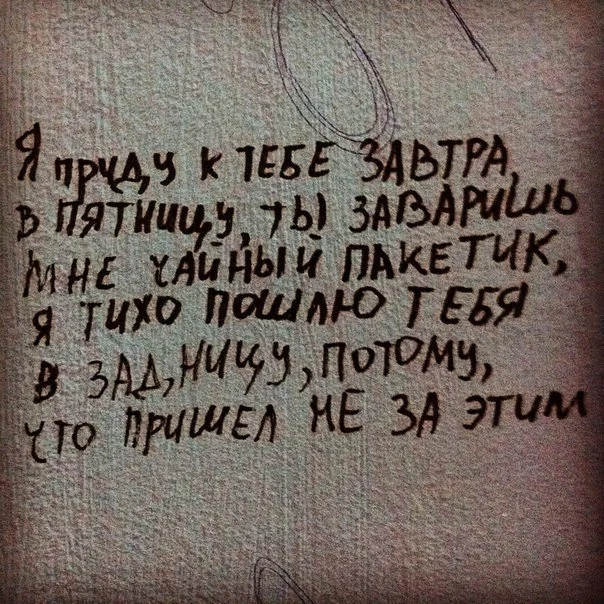 Я приду к тебе завтра,
в пятницу, ты заваришь
мне чайный пакетик,
я тихо пошлю тебя
в зад,ницу, потому,
что пришел не за этим